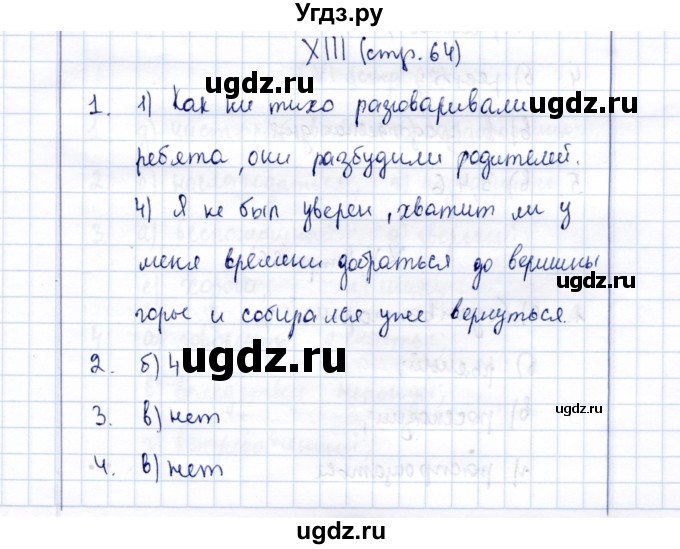 Угдз.ру
XIII (стр. 64)
ugdz.ru
1. 1) Как ни тихо разговаривали
ugdz.ru
ребята, они разбудили родителей.
4) Я не был уверен, хватит ли у
меня времени добраться до вершины
ugdz.ru
горы и собирался уже вернуться.
2. б) 4
ugdz.ru
3. в) нет
ugdz.ru
4. в) нет
ugdz.ru
ugdz.ru